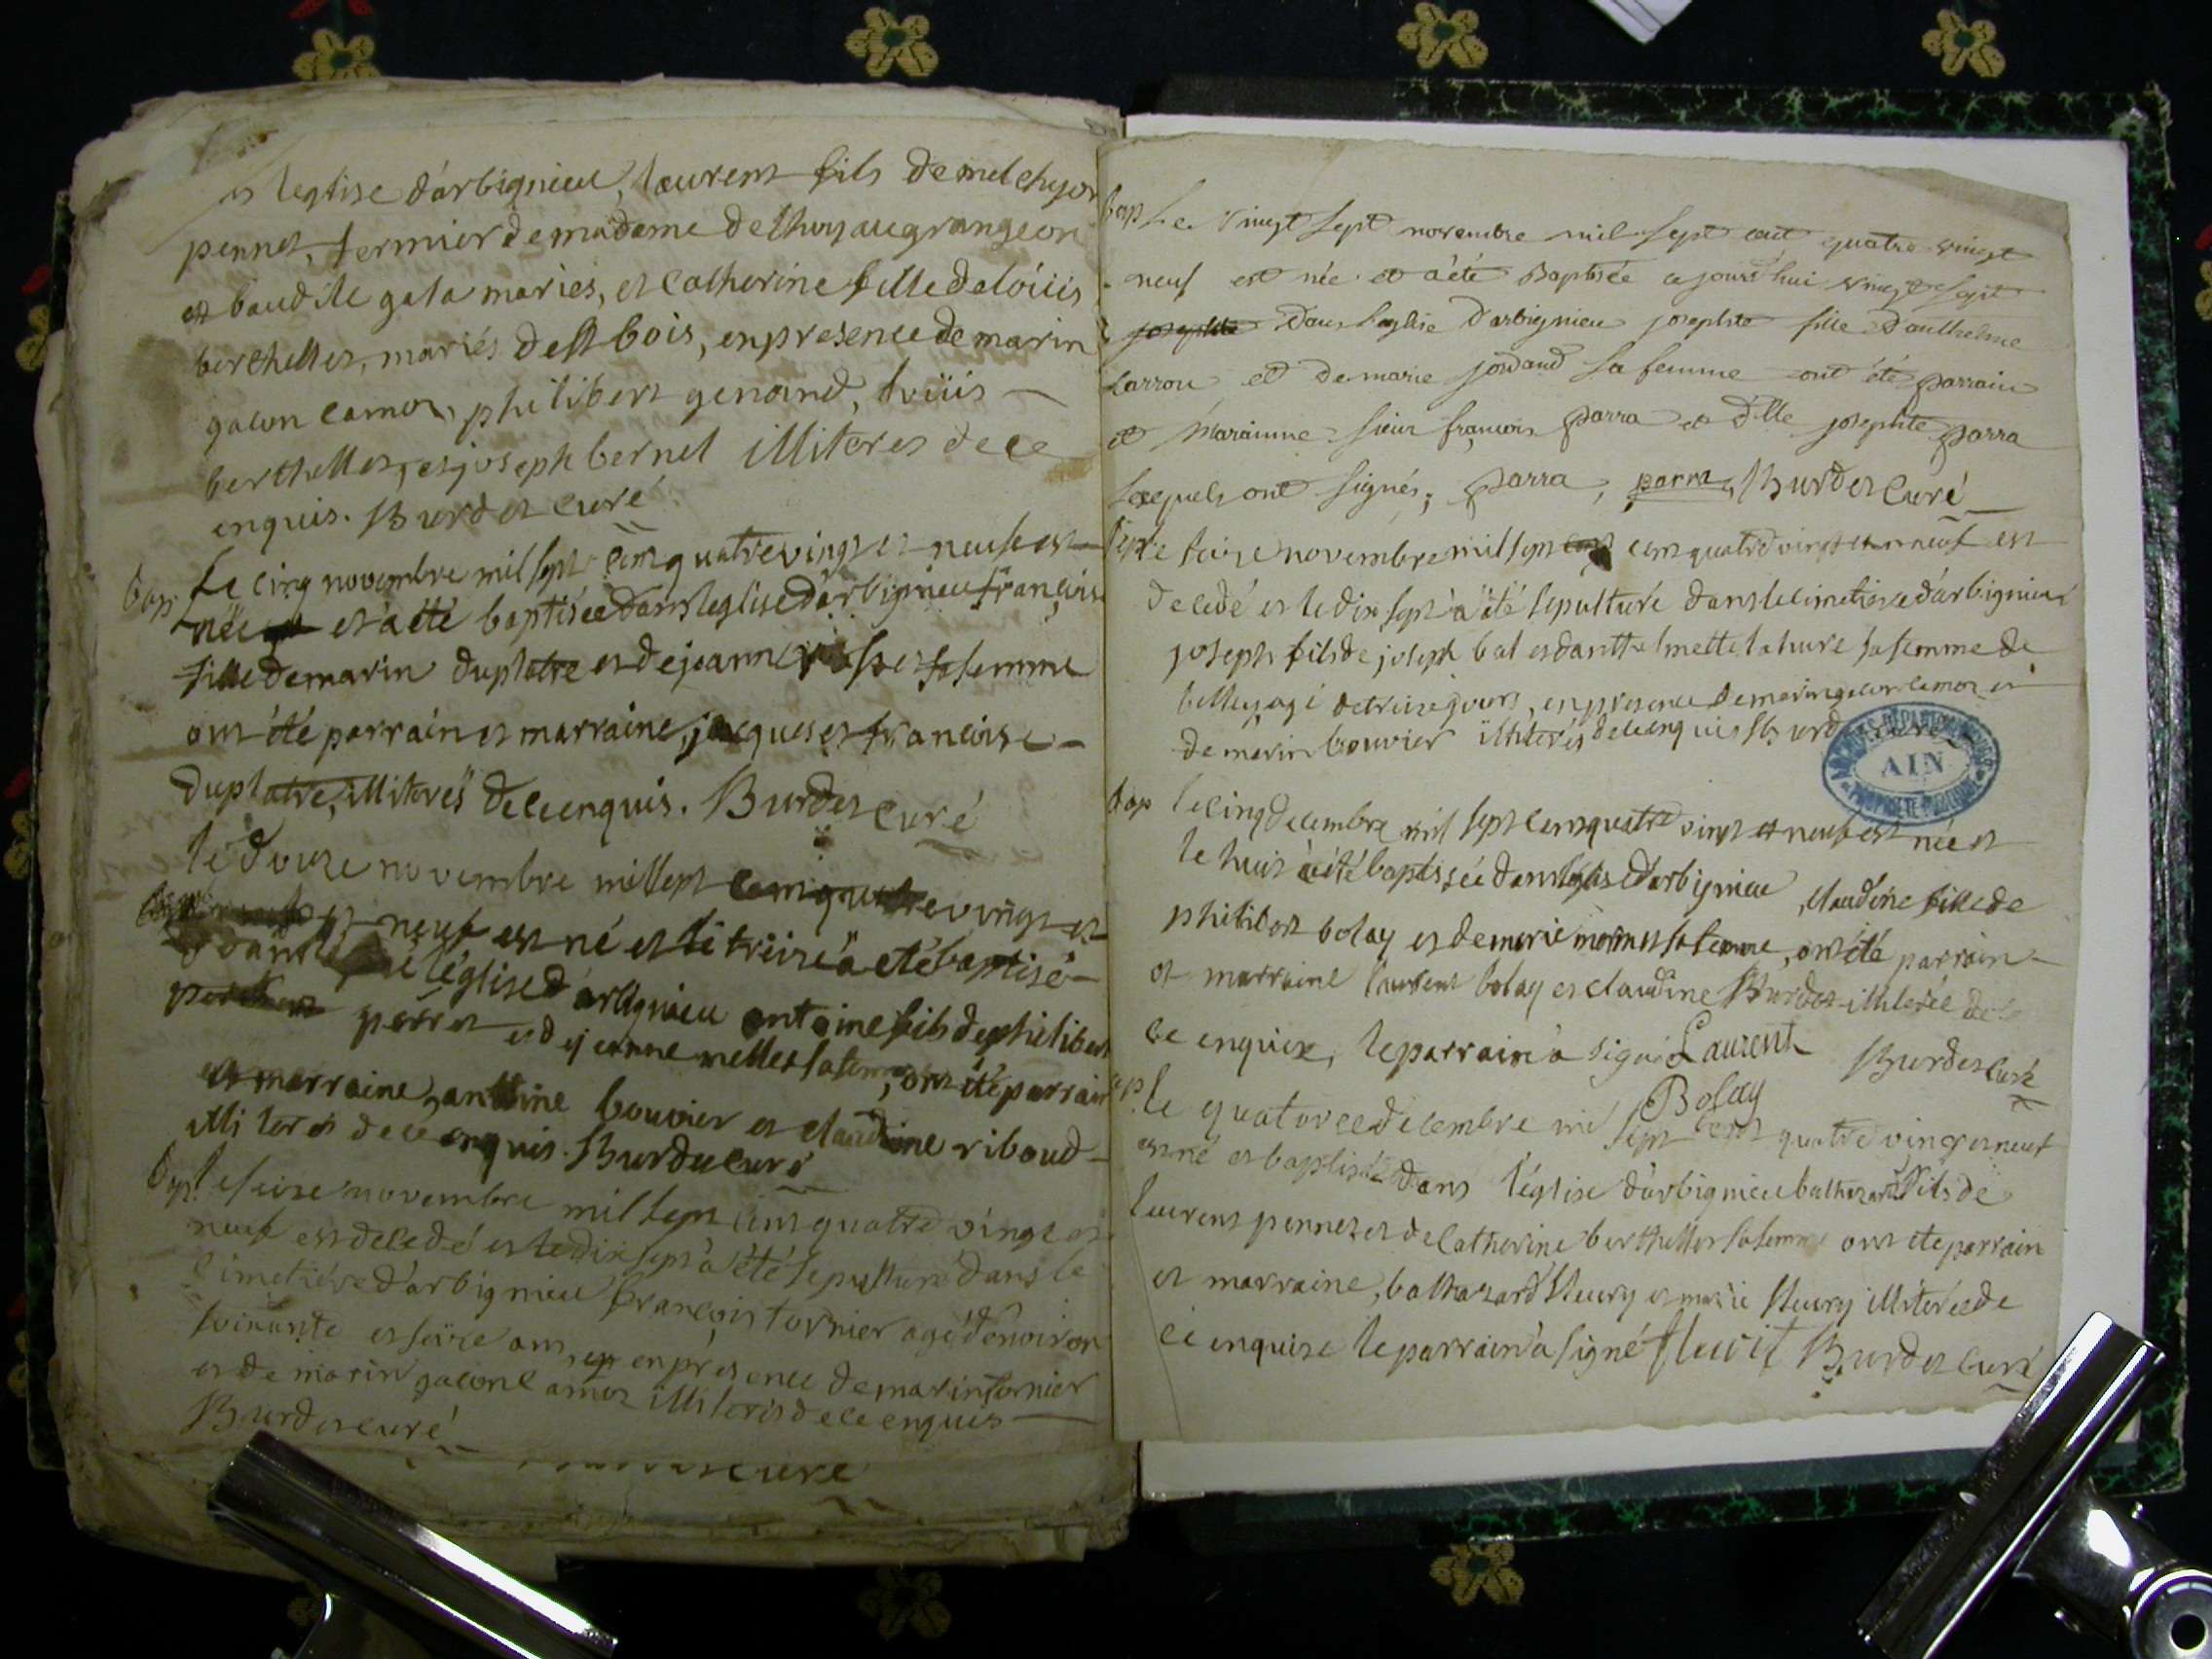 leglise d'arbignieu, laurent fils de melchyor
pennet, fermier de madame delhuy au grangeon
et baudile gala mariés, et Catherine fille de loüis
berthellet, mariés de st bois, en presence de marin
galon lamot, philibert genand, loüis
berthellet, et joseph bernel illiteres de ce
enquis. Burdet Curé
bap. Le cinq novembre mil sept cent quatre vingt et neuf est
née et a été baptisée dans leglise d'arbignieu françoise
fille de marin duplatre et de jeanne sa femme
ont été parrain et marraine, jacques et francoise
duplatre, illiterés de ce enquis. Burdet Curé
le douze novembre mil sept cent quatre vingt et
neuf est né et le treize a eté baptisé
léglise d'arbignieu antoine fils de philibert
perret et de jeanne mellet sa femme, ont été parrain
et marraine, antoine bouvier et claudine riboud
illiterés de ce enquis. Burdet Curé
le seize novembre mil sept cent quatre vingt et
neuf est decedé et le dix sept a été sepulturé dans le
cimetière d'arbignieu françois tornier agé d'enviror
soixante et seize ans, en présence de marin tornier
et de marin galon lamot illiterés de ce enquis
Burdet curé
curé
bap Le vingt sept novembre mil sept cent quatre vingt
neuf est née et a été Baptisée ce jourd'hui vingt sept
josephte dans leglise d'arbignieu josephte fille d'anthelme
Carron et de marie jordand sa femme ont été parrain
et Marainne sieur françois Parra et dlle josephte Parra
Lesquels ont signés; Parra, parra, Burdet Curé
sep Le seize novembre mil sept cent cent quatre vingt et neuf est
decedé et le dix sept a été sepulturé dans le cimetiere d'arbignieu
joseph fils de joseph bal et d'anthelmette lahure sa femme de
belley agé de treize jours, en presence de marin galon lamot et
de marin bouvier illiterés de ce enquis Burdet Curé
AIN
bap le cinq decembre mil sept cent quatre vingt et neuf est née et
le huit a été baptisée dans leglise d'arbignieu, claudine fille de
philibert bolay et de marie mornet sa femme, ont été parrain
et marraine laurent bolay et claudine Burdet illiterée de
ce enquise, le parrain a signé Laurent Burdet Curé
Bolay
le quatorze decembre mil sept cent quatre vingt et neuf
est né et baptisé dans l'église d'arbignieu balthazard fils de
laurent pennet et de Catherine berthellet sa femme ont été parrain
et marraine, balthazard fleury et marie fleury illiterée de
ce enquise le parrain a signé fleurit Burdet Curé